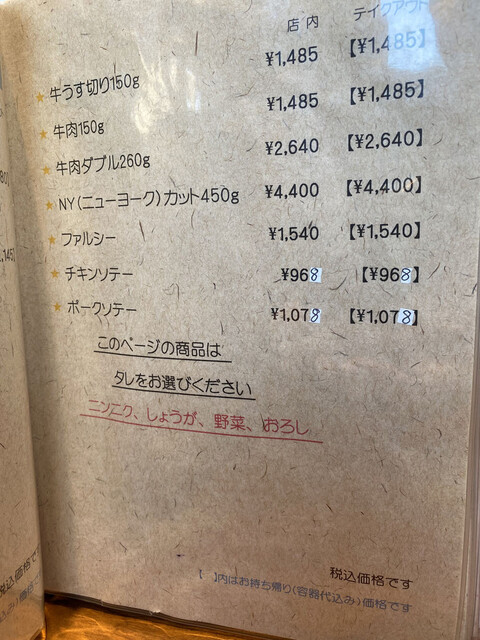 店内 テイクアウト
牛うす切り150g ¥1,485 【¥1,485】
牛肉150g ¥1,485 【¥1,485】
牛肉ダブル260g ¥2,640 【¥2,640】
NY(ニューヨーク)カット450g ¥4,400 【¥4,400】
ファルシー ¥1,540 【¥1,540】
チキンソテー ¥968 【¥968】
ポークソテー ¥1,078 【¥1,078】
このページの商品は
タレをお選びください
ニンニク、しょうが、野菜、おろし
税込価格です
【 】内はお持ち帰り(容器代込み)価格です